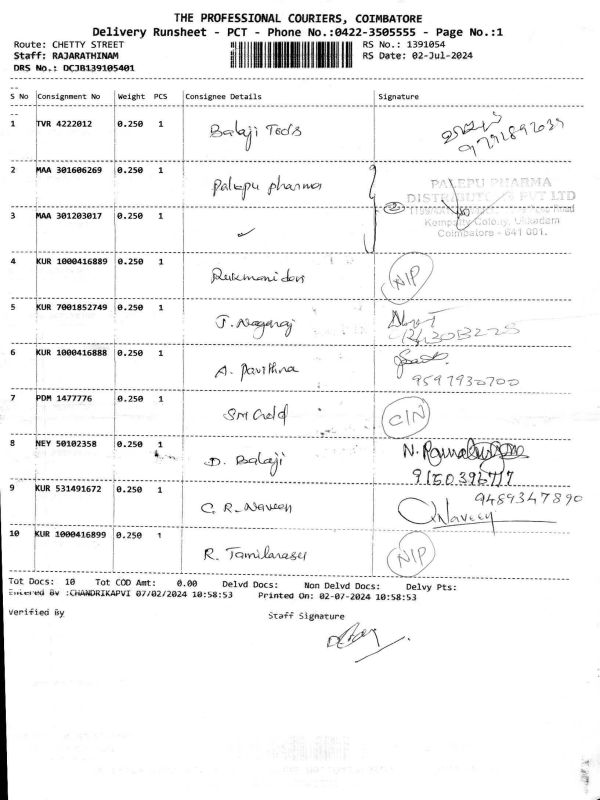 THE PROFESSIONAL COURIERS, COIMBATORE
Delivery Runsheet - PCT - Phone No.:0422-3505555 - Page No.:1
Route: CHETTY STREET RS No.: 1391054
Staff: RAJARATHINAM RS Date: 02-Jul-2024
DRS No.: DCJB139105401
S No Consignment No Weight PCS Consignee Details Signature
1 TVR 4222012 0.250 1 Balaji
2 MAA 301606269 0.250 1 Palepu pharma
PALEPU PHARMA
DISTRIBUTORS PVT LTD
3 MAA 301203017 0.250 1 ✓
Colony, Ukkadam
Coimbatore - 641 001.
4 KUR 1000416889 0.250 1 Rukmani NIP
5 KUR 7001852749 0.250 1 J. Nagaraj
6 KUR 1000416888 0.250 1 A. Pavithra
9597930700
7 PDM 1477776 0.250 1 SM Gold C/N
8 NEY 50102358 0.250 1 D. Balaji N.
9 KUR 531491672 0.250 1 C. R. Naveen 9489347890
Naveen
10 KUR 1000416899 0.250 1 R. Tamilarasu NIP
Tot Docs: 10 Tot COD Amt: 0.00 Delvd Docs: Non Delvd Docs: Delvy Pts:
Entered By :CHANDRIKAPVI 07/02/2024 10:58:53 Printed On: 02-07-2024 10:58:53
Verified By Staff Signature